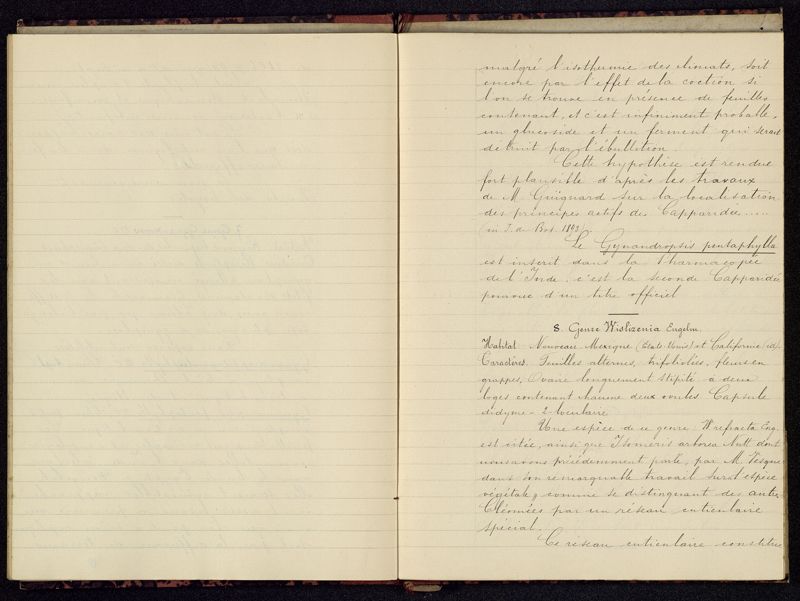 malgré l'isothermie des climats, soit
encore par l'effet de la coction si
l'on se trouve en présence de feuilles
contenant, et c'est infiniment probable,
un glucoside et un ferment qui serait
détruit par l'ébullition.
Cette hypothèse est rendue
fort plausible d'après les travaux
de M. Guignard sur la localisation
des principes actifs des Capparidées.....
(in J. de Bot. 1893)
Le Gynandropsis pentaphylla
est inscrit dans la Pharmacopée
de l'Inde, c'est la seconde Capparidée
pourvue d'un titre officiel
8. Genre Wislizenia Engelm.
Habitat Nouveau Mexique (Etats Unis) et Californie (id).
Caractères. Feuilles alternes, trifoliolées, fleurs en
grappes, Ovaire longuement stipité à deux
loges contenant chacune deux ovules. Capsule
didyme - 2-loculaire
Une espèce de ce genre W refracta Eng.
est citée, ainsi que Isomeris arborea Nutt dont
nous avons précédemment parlé, par M. Vesque
dans son remarquable travail sur l'espèce
végétale, comme se distinguant des autres
Cléomées par un réseau cuticulaire
spécial.
Ce réseau cuticulaire constitue